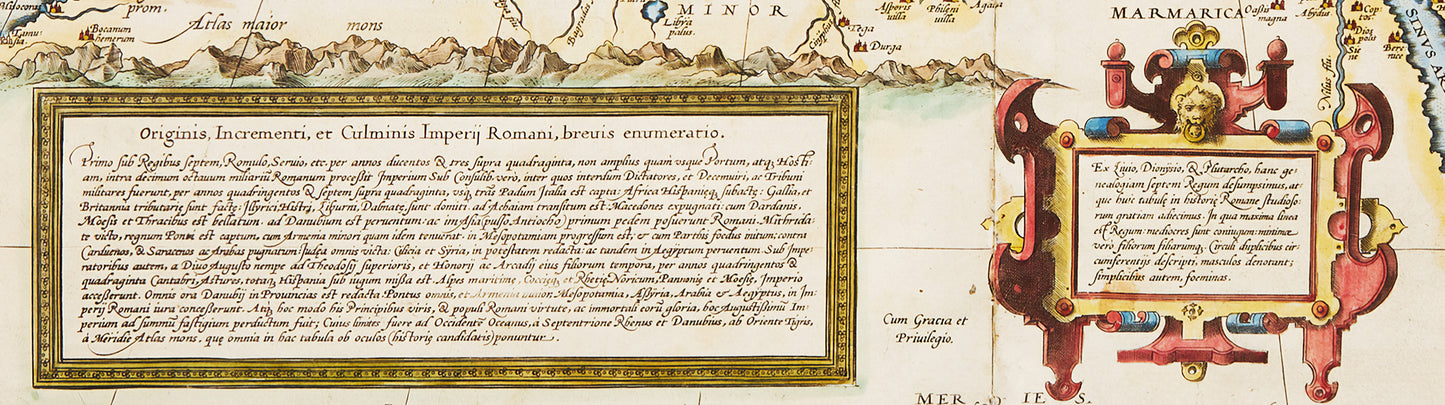 prom.
Atlas maior mons
Bocanum
hemerum
MINOR
Libya
palus.
Asporis
uilla
Phileni
uilla
Tega
Durga
MARMARICA
Oasis
magna
Abydus
Cop-
tos
Dios
polis
Sie
ne
Bere
nice
Nilus flu.
SINVS
Originis, Incrementi, et Culminis Imperij Romani, breuis enumeratio.
Primo sub Regibus septem, Romulo, Seruio, etc. per annos ducentos & tres supra quadraginta, non amplius quam vsque Portum, atq₃ Hosti-
am, intra decimum octauum miliarij Romanum processit Imperium. Sub Consulib. vero, inter quos interdum Dictatores, et Decemuiri, ac Tribuni
militares fuerunt, per annos quadringentos & septem supra quadraginta, vsq₃ trãs Padum Italia est capta: Africa Hispanięq₃ subactę: Gallię, et
Britannia tributarię sunt factę. Illyrici, Histri, Liburni, Dalmatę, sunt domiti. ad Achaiam transitum est. Macedones expugnati: cum Dardanis,
Moesis et Thracibus est bellatum. ad Danubium est peruentum: ac in Asia (pulso Antiocho) primum pedem posuerunt Romani. Mithrida-
te victo, regnum Ponti est captum, cum Armenia minori quam idem tenuerat. in Mesopotamiam progressum est; & cum Parthis foedus initum: contra
Carduenos, & Saracenos ac Arabas pugnatum: Iudęa omnis victa: Cilicia et Syria, in potestatem redacta: ac tandem in Aegyptum peruentum. Sub Impe-
ratoribus autem, a Diuo Augusto nempe ad Theodosij superioris, et Honorij ac Arcadij eius filiorum tempora, per annos quadringentos &
quadraginta Cantabri, Astures, totaq₃ Hispania sub iugum missa est. Alpes maritimę, Coccięq₃ et Rhetię Noricum, Pannonię et Moesię, Imperio
accesserunt. Omnis ora Danubij in Prouincias est redacta. Pontus omnis, et Armenia maior, Mesopotamia, Assyria, Arabia & Aegyptus, in Im-
perij Romani iura concesserunt. Atq₃ hoc modo his Principibus viris, & populi Romani virtute, ac immortali eorũ gloria, hoc Augustissimũ Im-
perium ad summũ fastigium perductum fuit; Cuius limites fuere ad Occidentẽ Oceanus, a Septentrione Rhenus et Danubius, ab Oriente Tigris,
à Meridie Atlas mons. quę omnia in hac tabula ob oculos (historię candidatis) ponuntur.
Cum Gracia et
Priuilegio.
Ex Liuio, Dionysio, & Plutarcho, hanc ge-
nealogiam septem Regum desumpsimus, at-
que huic tabulę in historię Romane studioso-
rum gratiam adiecimus. In qua maxima linea
est Regum: mediocres sunt coniugum: minimę
vero filiorum filiarumq₃. Circuli duplicibus cir-
cumferentijs descripti, masculos denotant;
simplicibus autem, foeminas.
MER IE S.